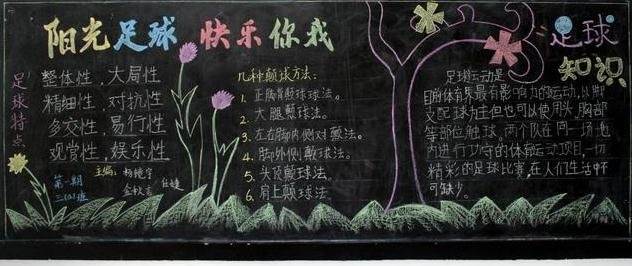 阳光足球 快乐你我
足球特点
整体性,大局性
精细性,对抗性
多交性,易行性
观赏性,娱乐性
主编:
第一期
三(2)班
几种颠球方法:
1. 正脚背颠球球法。
2. 大腿颠球法。
3. 左右脚内侧对颠法。
4. 脚外侧颠球法。
5. 头顶颠球法。
6. 肩上颠球法。
足球
知识
足球运动是
目前体育界最有影响力的运动,以脚
支配球为主但也可以使用头,胸部
等部位触球,两个队在同一场地
内进行攻守的体育运动项目,一场
精彩的足球比赛,在人们生活中不
可缺少。